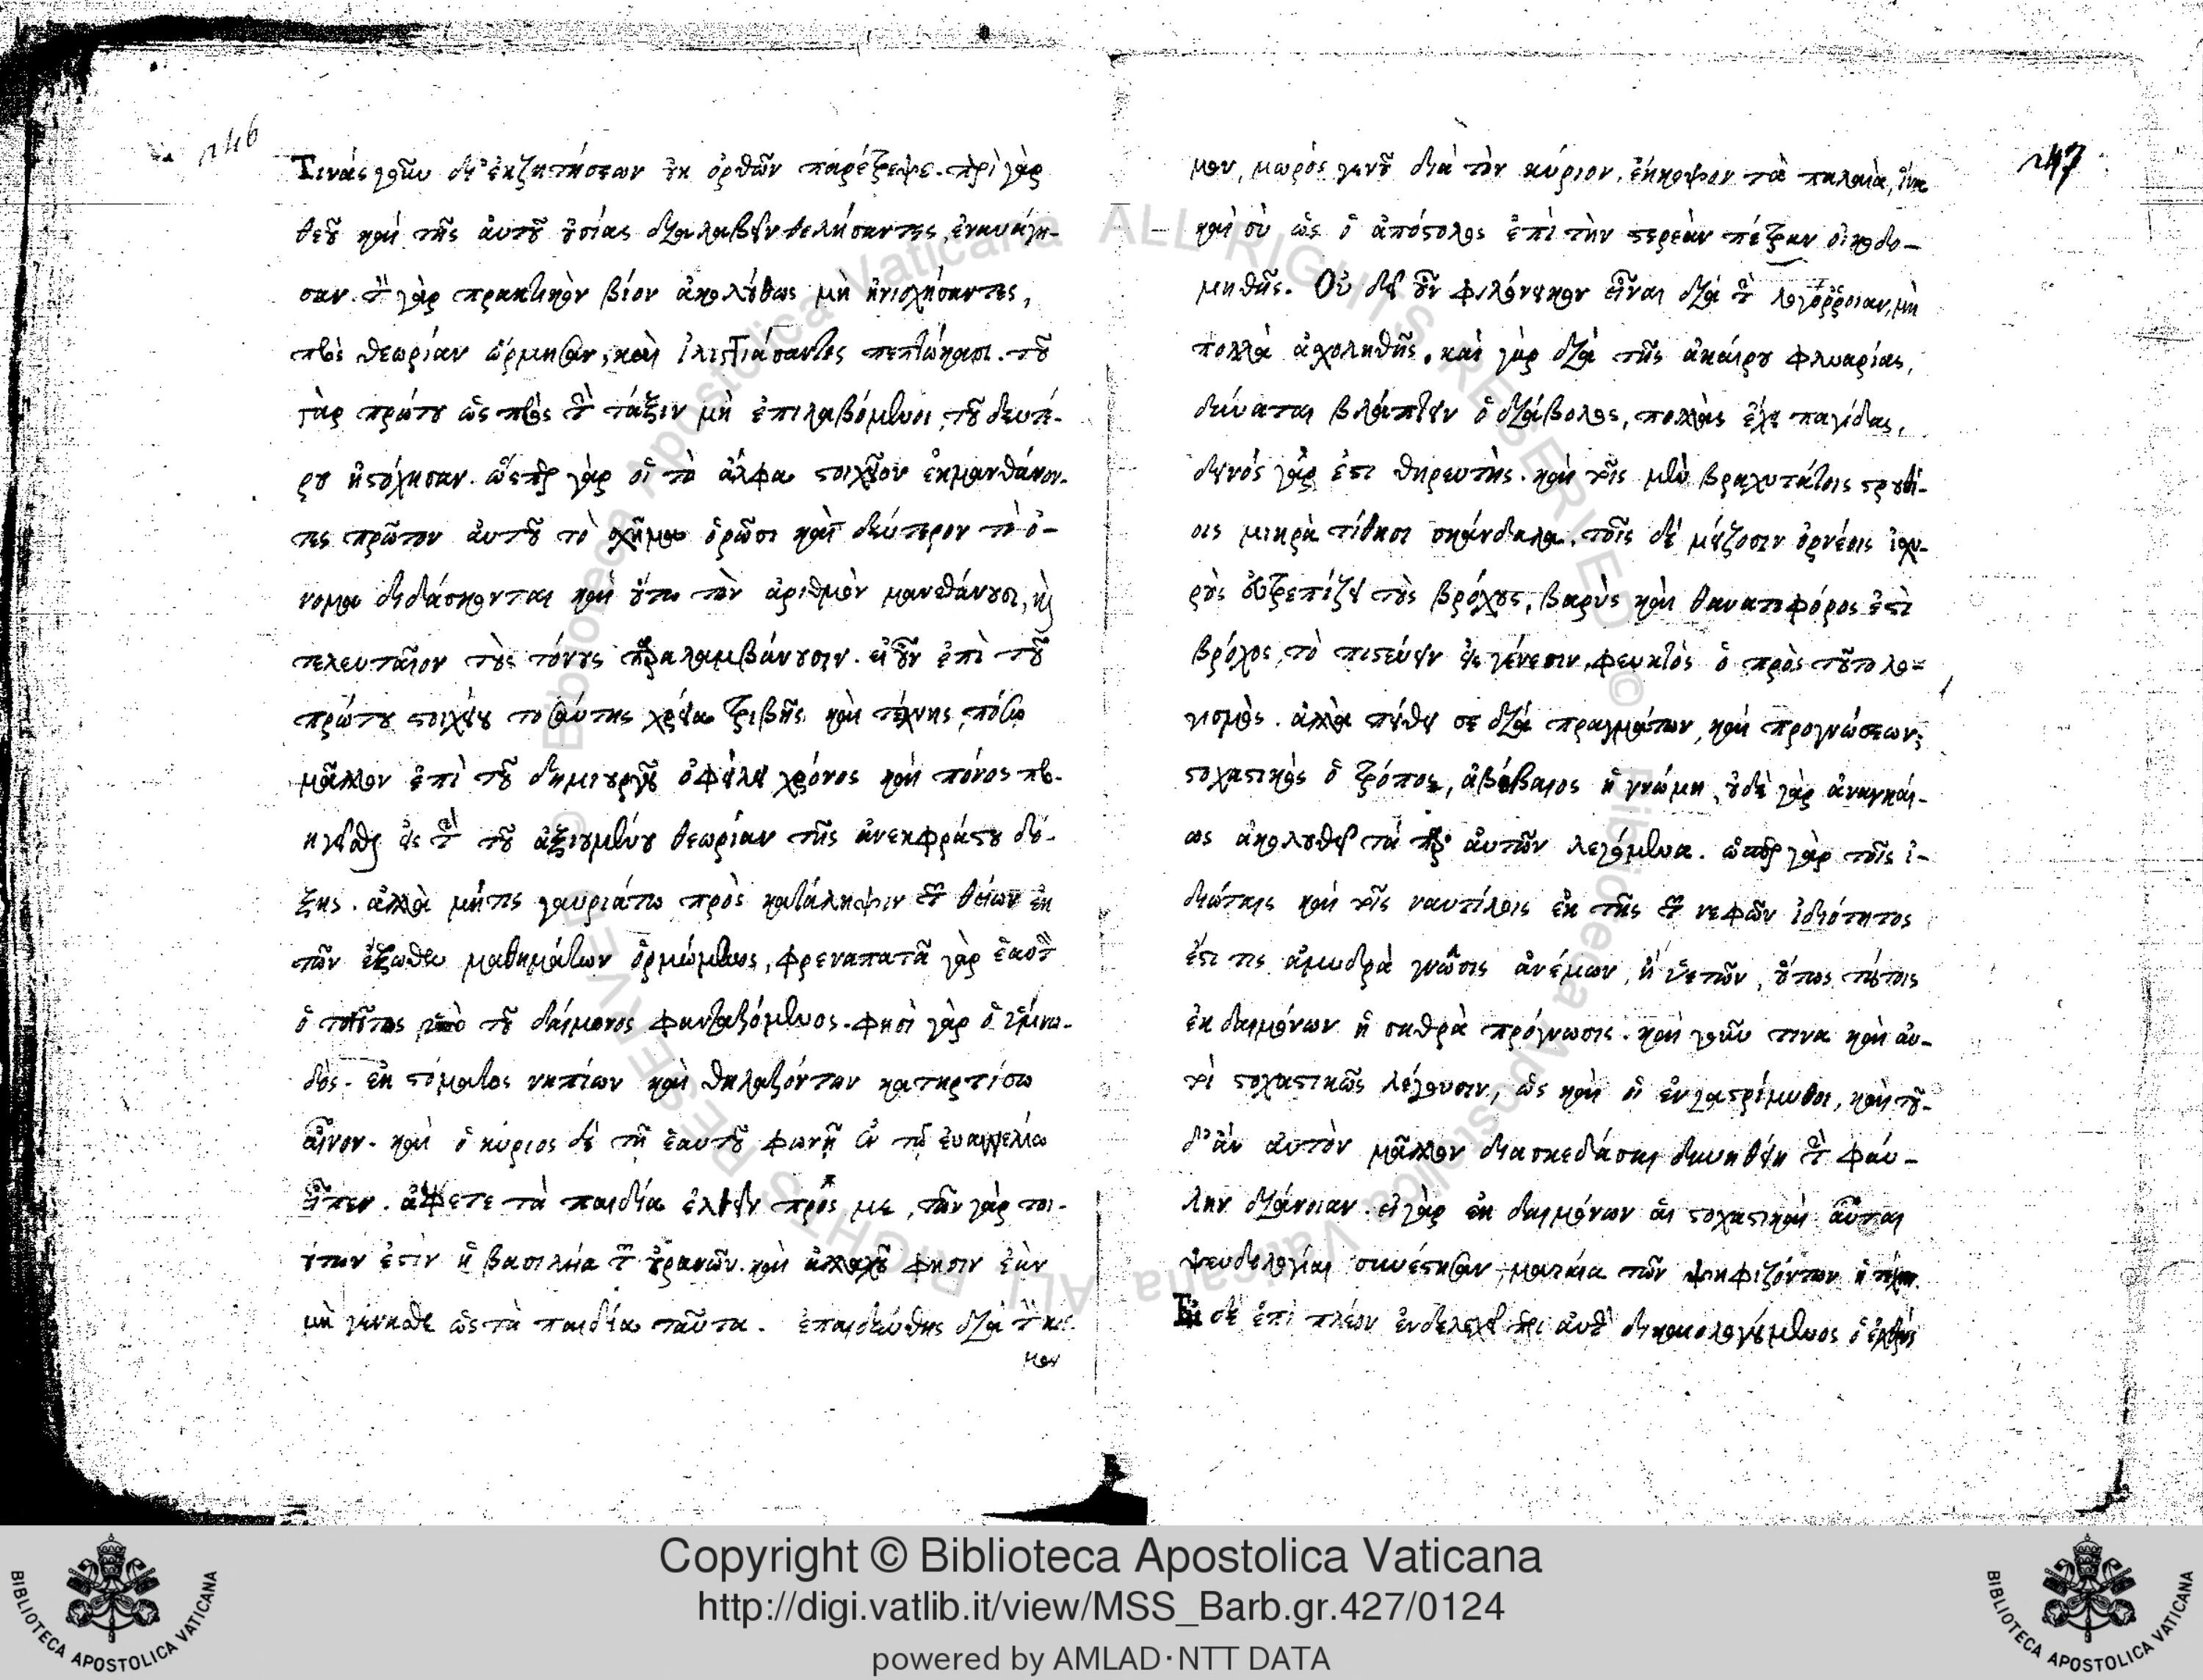 246
Τινάς γοῦν δι' ἐκζητήσεων οὐκ ὀρθῶν παρέτρεψε. περὶ γὰρ
θεοῦ καὶ τῆς αὐτοῦ οὐσίας διαλαβεῖν θελήσαντες, ἐναυάγη-
σαν. τὸν γὰρ πρακτικὸν βίον ἀκολούθως μὴ
πρὸς θεωρίαν ὥρμησαν, καὶ ἰλιγγιάσαντες πεπτώκασι. τοῦ
γὰρ πρώτου ὡς πρὸς τὴν τάξιν μὴ ἐπιλαβόμενοι, τοῦ δευτέ-
ρου ἠστόχησαν. ὥσπερ γὰρ οἱ τὸ ἄλφα στοιχεῖον ἐκμανθάνον-
τες πρῶτον αὐτοῦ τὸ σχῆμα ὁρῶσι καὶ δεύτερον τὸ ὄ-
νομα διδάσκονται καὶ οὕτω τὸν ἀριθμὸν μανθάνουσι, καὶ
τελευταῖον τοὺς τόνους παραλαμβάνουσιν. εἰ οὖν ἐπὶ τοῦ
πρώτου στοιχείου τοσαύτης χρεία τριβῆς καὶ τέχνης, πόσῳ
μᾶλλον ἐπὶ τοῦ δημιουργοῦ ὀφείλει χρόνος καὶ πόνος προ-
ηγεῖσθαι εἰς τὴν τοῦ ἀξιουμένου θεωρίαν τῆς ἀνεκφράστου δό-
ξης. ἀλλὰ μήτις γαυριάτω πρὸς κατάληψιν τῶν θείων ἐκ
τῶν ἔξωθεν μαθημάτων ὁρμώμενος, φρεναπατᾶ γὰρ ἑαυτὸν
ὁ τοιοῦτος ὑπὸ τοῦ δαίμονος φανταζόμενος. φησὶ γὰρ ὁ ὑμνω-
δός. ἐκ στόματος νηπίων καὶ θηλαζόντων κατηρτίσω
αἶνον. καὶ ὁ κύριος δὲ τῇ ἑαυτοῦ φωνῇ ἐν τῷ εὐαγγελίῳ
εἶπεν. ἄφετε τὰ παιδία ἐλθεῖν πρός με, τῶν γὰρ τοι-
ούτων ἐστὶν ἡ βασιλεία τῶν οὐρανῶν. καὶ ἀλλαχοῦ φησιν ἐὰν
μὴ γένησθε ὡς τὰ παιδία ταῦτα. ἐπαιδεύθης διὰ τὸν κόσ-
μον
247
μον, μωρὸς γενοῦ διὰ τὸν κύριον. ἔκκοψον τὰ παλαιὰ, ἵνα
καὶ σὺ ὡς ὁ ἀπόστολος ἐπὶ τὴν στερεὰν πέτραν οἰκοδο-
μηθῇς. Οὐ δεῖ οὖν φιλόνεικον εἶναι διὰ τὴν λογόρροιαν, μὴ
πολλὰ ἀσχοληθῇς. καὶ γὰρ διὰ τῆς ἀκαίρου φλυαρίας,
δύναται βλάπτειν ὁ διάβολος, πολλὰς ἔχει παγίδας,
δεινός γὰρ ἐστι θηρευτής. καὶ τοῖς μὲν βραχυτάτοις στρουθί-
οις μικρὰ τίθησι σκάνδαλα. τοῖς δὲ μείζοσιν ὀρνέοις ἰσχυ-
ροὺς εὐτρεπίζει τοὺς βρόχους, βαρὺς καὶ θανατηφόρος ἐστὶ
βρόχος, τὸ πιστεύειν εἰς γένεσιν, φευκτὸς ὁ πρὸς τοῦτο λο-
γισμὸς. ἀλλὰ πείθει σε διὰ πραγμάτων, καὶ προγνώσεων;
στοχαστικὸς ὁ τρόπος, ἀβέβαιος ἡ γνώμη, οὐδὲ γὰρ ἀναγκαί-
ως ἀκολουθεῖ τὰ παρ' αὐτῶν λεγόμενα. ὥσπερ γὰρ τοῖς ἰ-
διώταις καὶ τοῖς ναυτίλοις ἐκ τῆς τῶν νεφῶν ἰδιότητος
ἐστι τις ἀμυδρὰ γνῶσις ἀνέμων, ἢ ὑετῶν, οὕτως τούτοις
ἐκ δαιμόνων ἡ σαθρὰ πρόγνωσις. καὶ γοῦν τινα καὶ αὐ-
τοὶ στοχαστικῶς λέγουσιν, ὡς καὶ οἱ ἐγγαστρίμυθοι, καὶ τοῦ-
δ' ἂν αὐτὸν μᾶλλον διασκεδάσαι δυνηθείη τὴν φαύ-
λην διάνοιαν. εἰ γὰρ ἐκ δαιμόνων αἱ στοχαστικαὶ αὗται
ψευδολογίαι συνέστησαν, ματαία τῶν ψηφιζόντων ἡ τέχνη.
δὲ ἐπὶ πλέον ἐνδελεχεῖ δικαιολογούμενος ὁ ἐχθρὸς
Copyright © Biblioteca Apostolica Vaticana
http://digi.vatlib.it/view/MSS_Barb.gr.427/0124
powered by AMLAD·NTT DATA
BIBLIOTECA APOSTOLICA VATICANA
BIBLIOTECA APOSTOLICA VATICANA